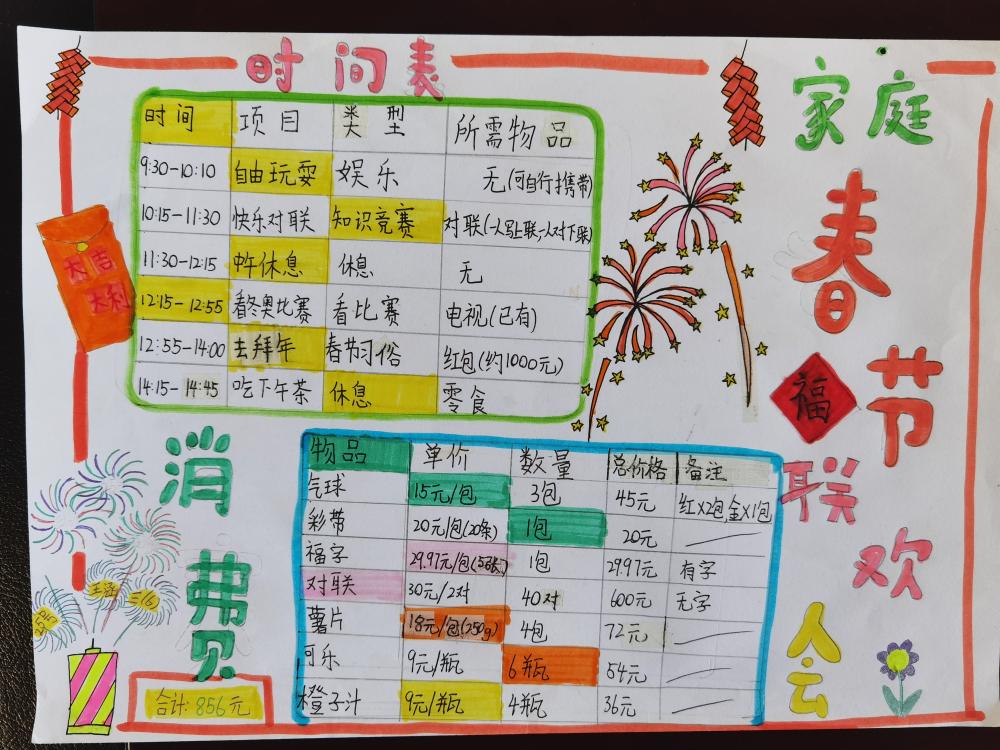 时间表
家庭
春节
联欢
会
时间 项目 类型 所需物品
9:30-10:10 自由玩耍 娱乐 无(可自行携带)
10:15-11:30 快乐对联 知识竞赛 对联(一人写上联,一人对下联)
11:30-12:15 中午休息 休息 无
12:15-12:55 看冬奥比赛 看比赛 电视(已有)
12:55-14:00 去拜年 春节习俗 红包(约1000元)
14:15-14:45 吃下午茶 休息 零食
大吉
大利
福
消费
物品 单价 数量 总价格 备注
气球 15元/包 3包 45元 红×2包,金×1包
彩带 20元/包(20条) 1包 20元
福字 29.97元/包 1包 29.97元 有字
对联 30元/2对 40对 600元 无字
薯片 18元/包(250g) 4包 72元
可乐 9元/瓶 6瓶 54元
橙子汁 9元/瓶 4瓶 36元
合计:856元